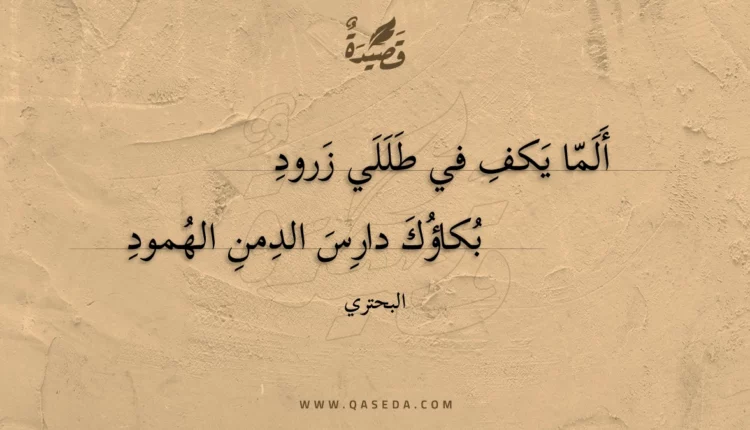 قَصِيْدَةٌ
أَلَمّا يَكفِ في طَلَلَي زَرودِ
بُكاؤُكَ دارِسَ الدِمنِ الهُمودِ
البحتري
WWW.QASEDA.COM